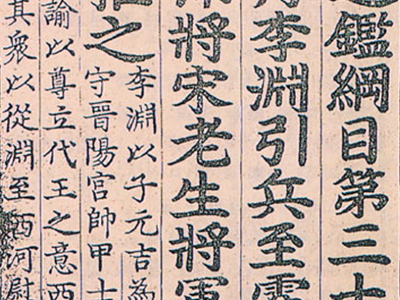 鑑綱目第三十
李淵引兵至
將宋老生將軍
之
李淵以子元吉為
守晉陽宮帥甲士
諭以尊立代王之意西
其衆以從淵至西河慰